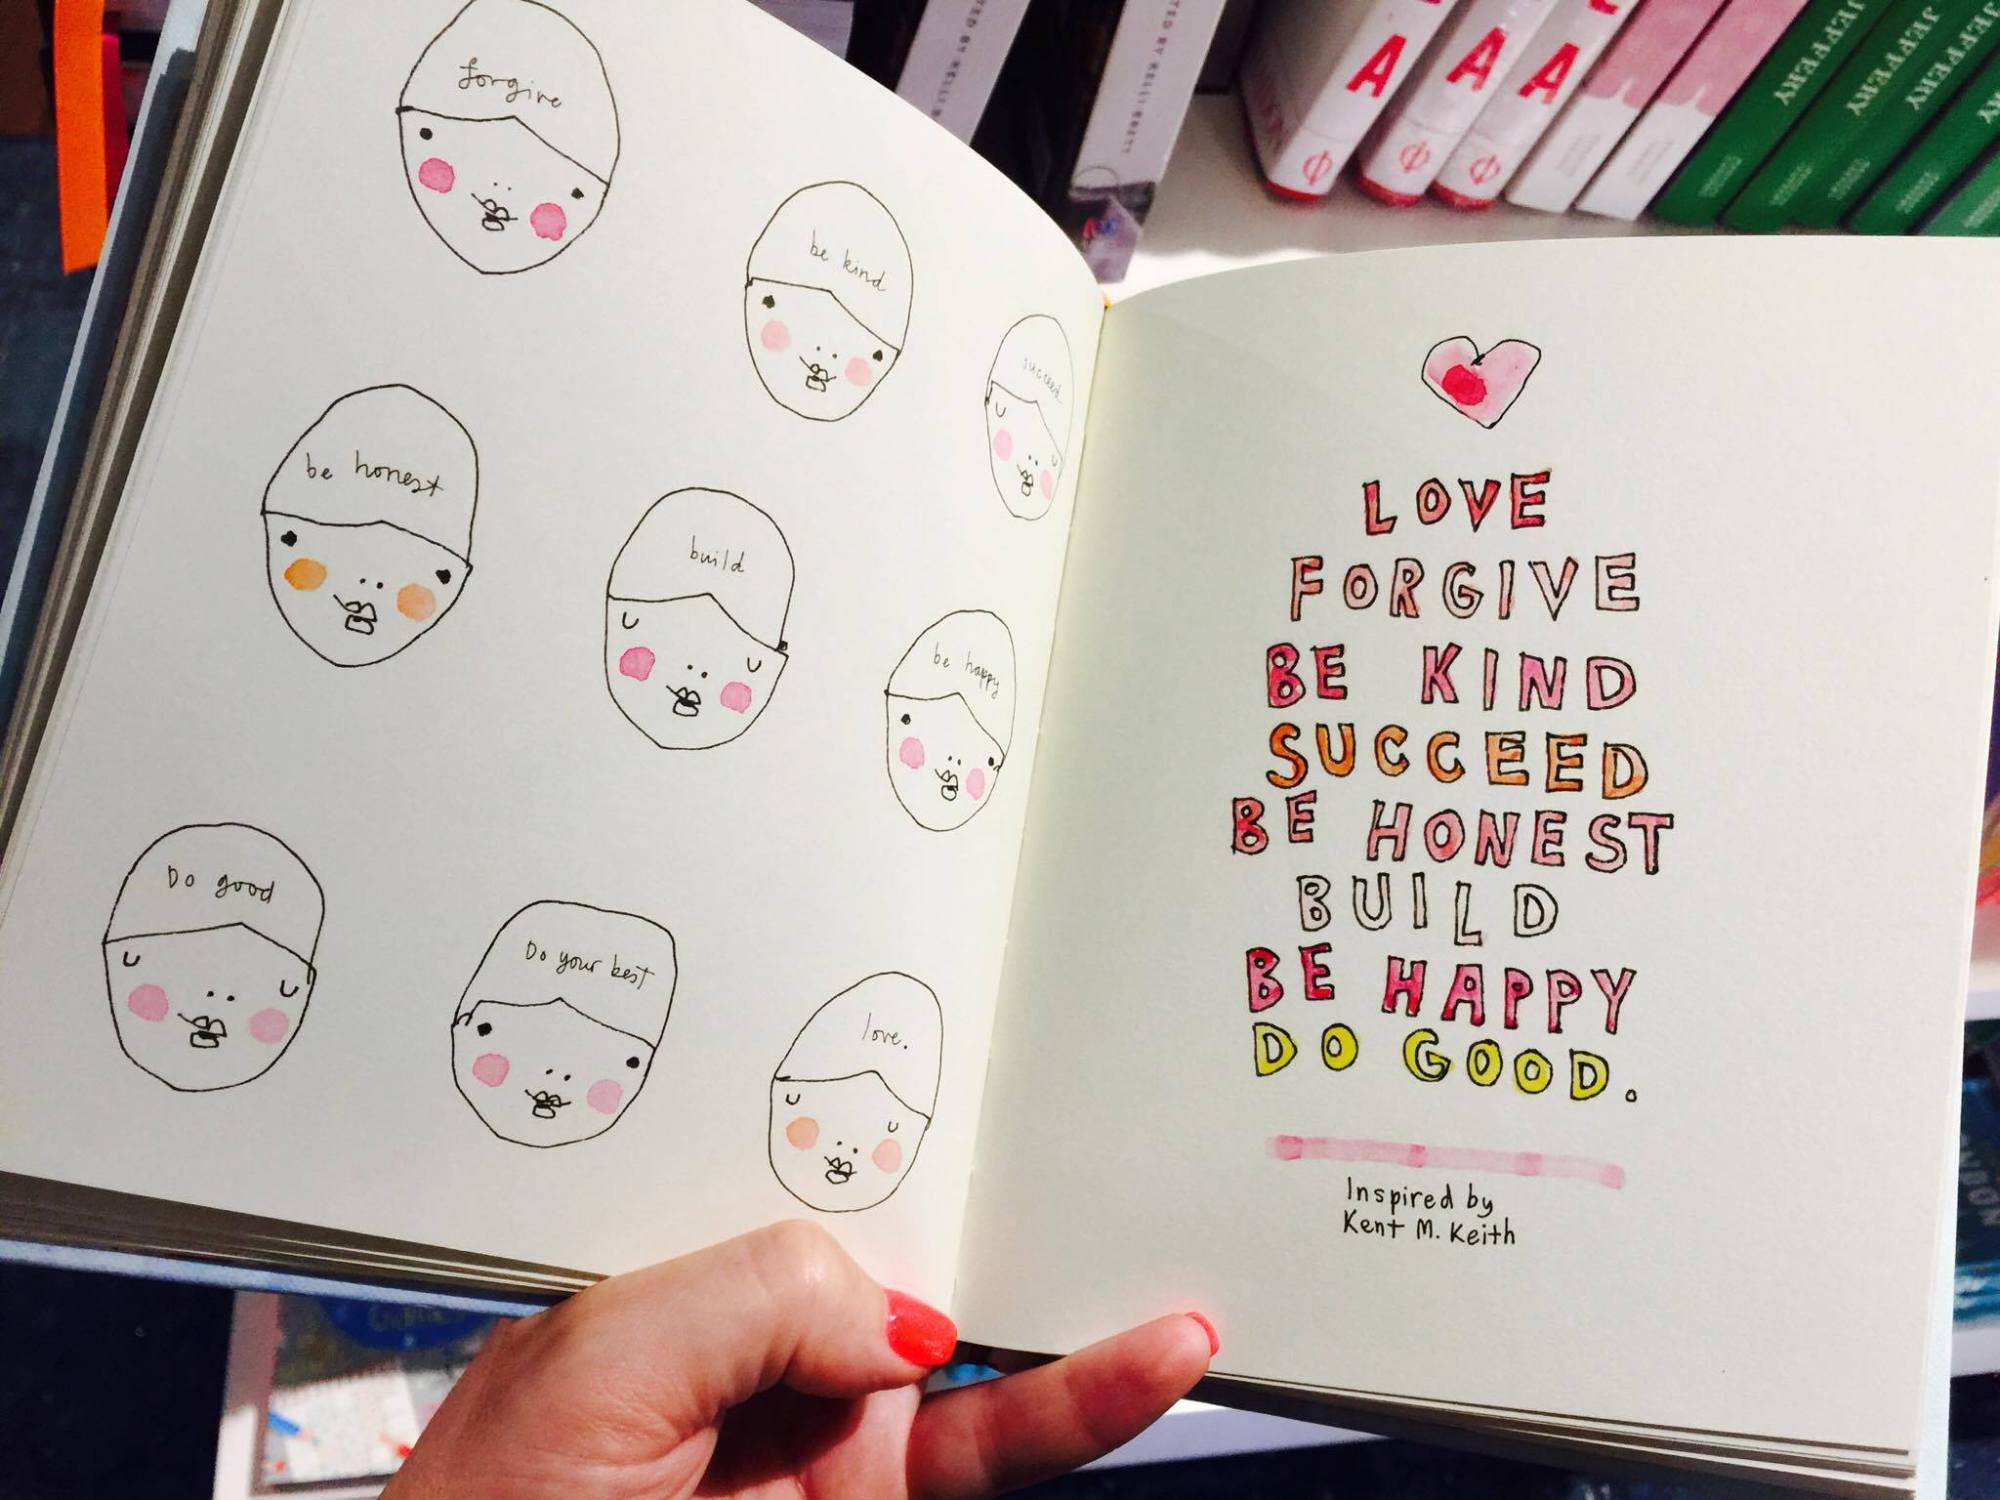 forgive
be kind
succeed
be honest
build
be happy
Do good
Do your best
love.
LOVE
FORGIVE
BE KIND
SUCCEED
BE HONEST
BUILD
BE HAPPY
DO GOOD.
Inspired by
Kent M. Keith
A
A
A
JEFFERY
JEFFERY
JEFFERY
JEFFERY